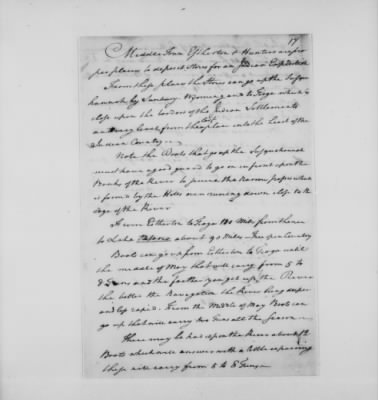 17
Middle Town Estherton & Hunters are pro
per places to deposit Stores for an Indian Expedition
From these places the Stores can go up the Susque
hannah by Sunbury Wyoming and to Tioga which is
close upon the borders of the Indian Settlements
and very level from that place into the Heart of the
Indian Country
Note the Boats that go up the Susquehannah
must have a good guard to go on in front upon the
Banks of the River to prevent the Narrow passes which
is form'd by the Hills running down close to the
Edge of the River
From Estherton to Tioga 180 Miles from thence
to Lake about 90 Miles Country
Boats can go up from Estherton to Tioga until
the middle of May that will carry from 5 to
8 Tons and the farther you get up the River
the better the Navigation the River being deeper
and less rapid. From the Middle of May Boats can
go up that will carry two Tons all the Season
There may be had upon the River about 12
Boats which will answer with a little repairing
these will carry from 5 to 8 Tons